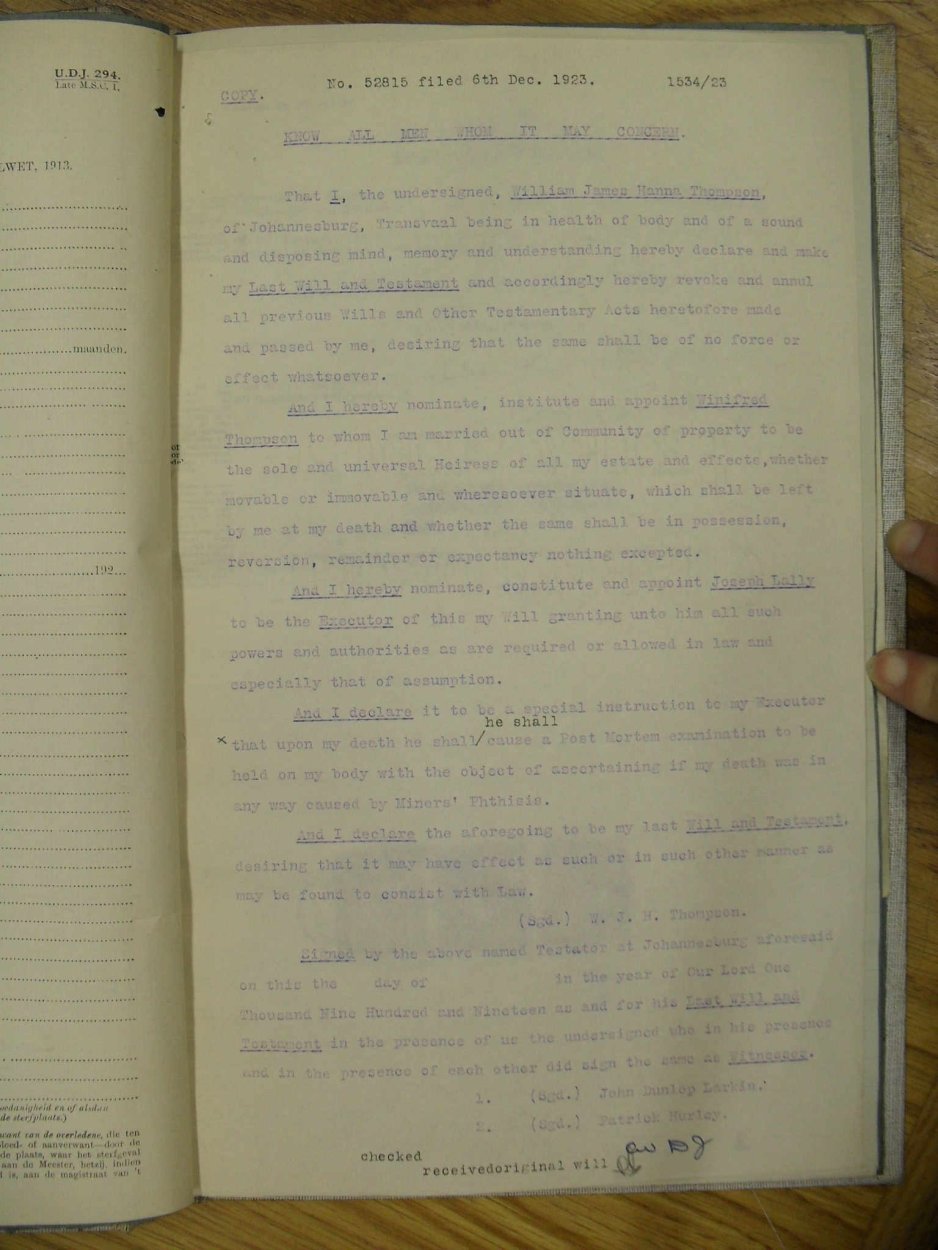 U.D.J. 294.
Late M.S.C. 1.
WET, 1913.
maanden.
192
de sterfplaats.)
van de overledene, die ten
of aanverwant door de
de plaats, waar het sterfgeval
aan de Meester, hetzij, indien
is, aan de magistraat van 't
No. 52815 filed 6th Dec. 1923. 1534/23
COPY.
KNOW ALL MEN WHOM IT MAY CONCERN.
That I, the undersigned, William James Hanna Thompson,
of Johannesburg, Transvaal being in health of body and of a sound
and disposing mind, memory and understanding hereby declare and make
my Last Will and Testament and accordingly hereby revoke and annul
all previous Wills and Other Testamentary Acts heretofore made
and passed by me, desiring that the same shall be of no force or
effect whatsoever.
And I hereby nominate, institute and appoint Winifred
Thompson to whom I am married out of Community of property to be
the sole and universal Heiress of all my estate and effects,whether
movable or immovable and wheresoever situate, which shall be left
by me at my death and whether the same shall be in possession,
reversion, remainder or expectancy nothing excepted.
And I hereby nominate, constitute and appoint Joseph Lally
to be the Executor of this my Will granting unto him all such
powers and authorities as are required or allowed in law and
especially that of assumption.
And I declare it to be a special instruction to my Executor
he shall
x that upon my death he shall/cause a Post Mortem examination to be
held on my body with the object of ascertaining if my death was in
any way caused by Miners' Phthisis.
And I declare the aforegoing to be my last Will and Testament,
desiring that it may have effect as such or in such other manner as
may be found to consist with Law.
(Sgd.) W. J. H. Thompson.
Signed by the above named Testator at Johannesburg aforesaid
on this the day of in the year of Our Lord One
Thousand Nine Hundred and Nineteen as and for his Last Will and
Testament in the presence of us the undersigned who in his presence
and in the presence of each other did sign the same as Witnesses.
1. (Sgd.) John Dunlop Larkin.
2. (Sgd.) Patrick Hurley.
checked
receivedoriginal will